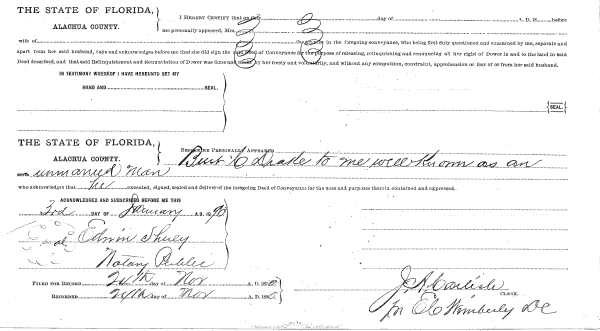 THE STATE OF FLORIDA,
ALACHUA COUNTY.
I HEREBY CERTIFY that on the day of A. D. 18 before
me personally appeared, Mrs.
wife of the grantor in the foregoing conveyance, who being first duly questioned and examined by me, separate and
apart from her said husband, says and acknowledges before me that she did sign the said Deed of Conveyance for the purpose of releasing, relinquishing and renouncing all her right of Dower in and to the land in said
Deed described, and that said Relinquishment and Renunciation of Dower was done and made by her freely and voluntarily, and without any compulsion, constraint, apprehension or fear of or from her said husband.
IN TESTIMONY WHEREOF I HAVE HEREUNTO SET MY
HAND AND SEAL.
SEAL.
THE STATE OF FLORIDA,
ALACHUA COUNTY.
PERSONALLY APPEARED
Burt C Drake to me well known as an
unmarried man
who acknowledges that he executed, signed, sealed and delivered the foregoing Deed of Conveyance for the uses and purposes therein contained and expressed.
ACKNOWLEDGED AND SUBSCRIBED BEFORE ME THIS
3rd DAY OF January A. D. 1890
Edwin Shuey
Notary Public
FILED FOR RECORD 24th day of Nov A. D. 1890
RECORDED 24th day of Nov A. D. 1890
J. A. Carlisle
CLERK.
for E C Wimberly DC